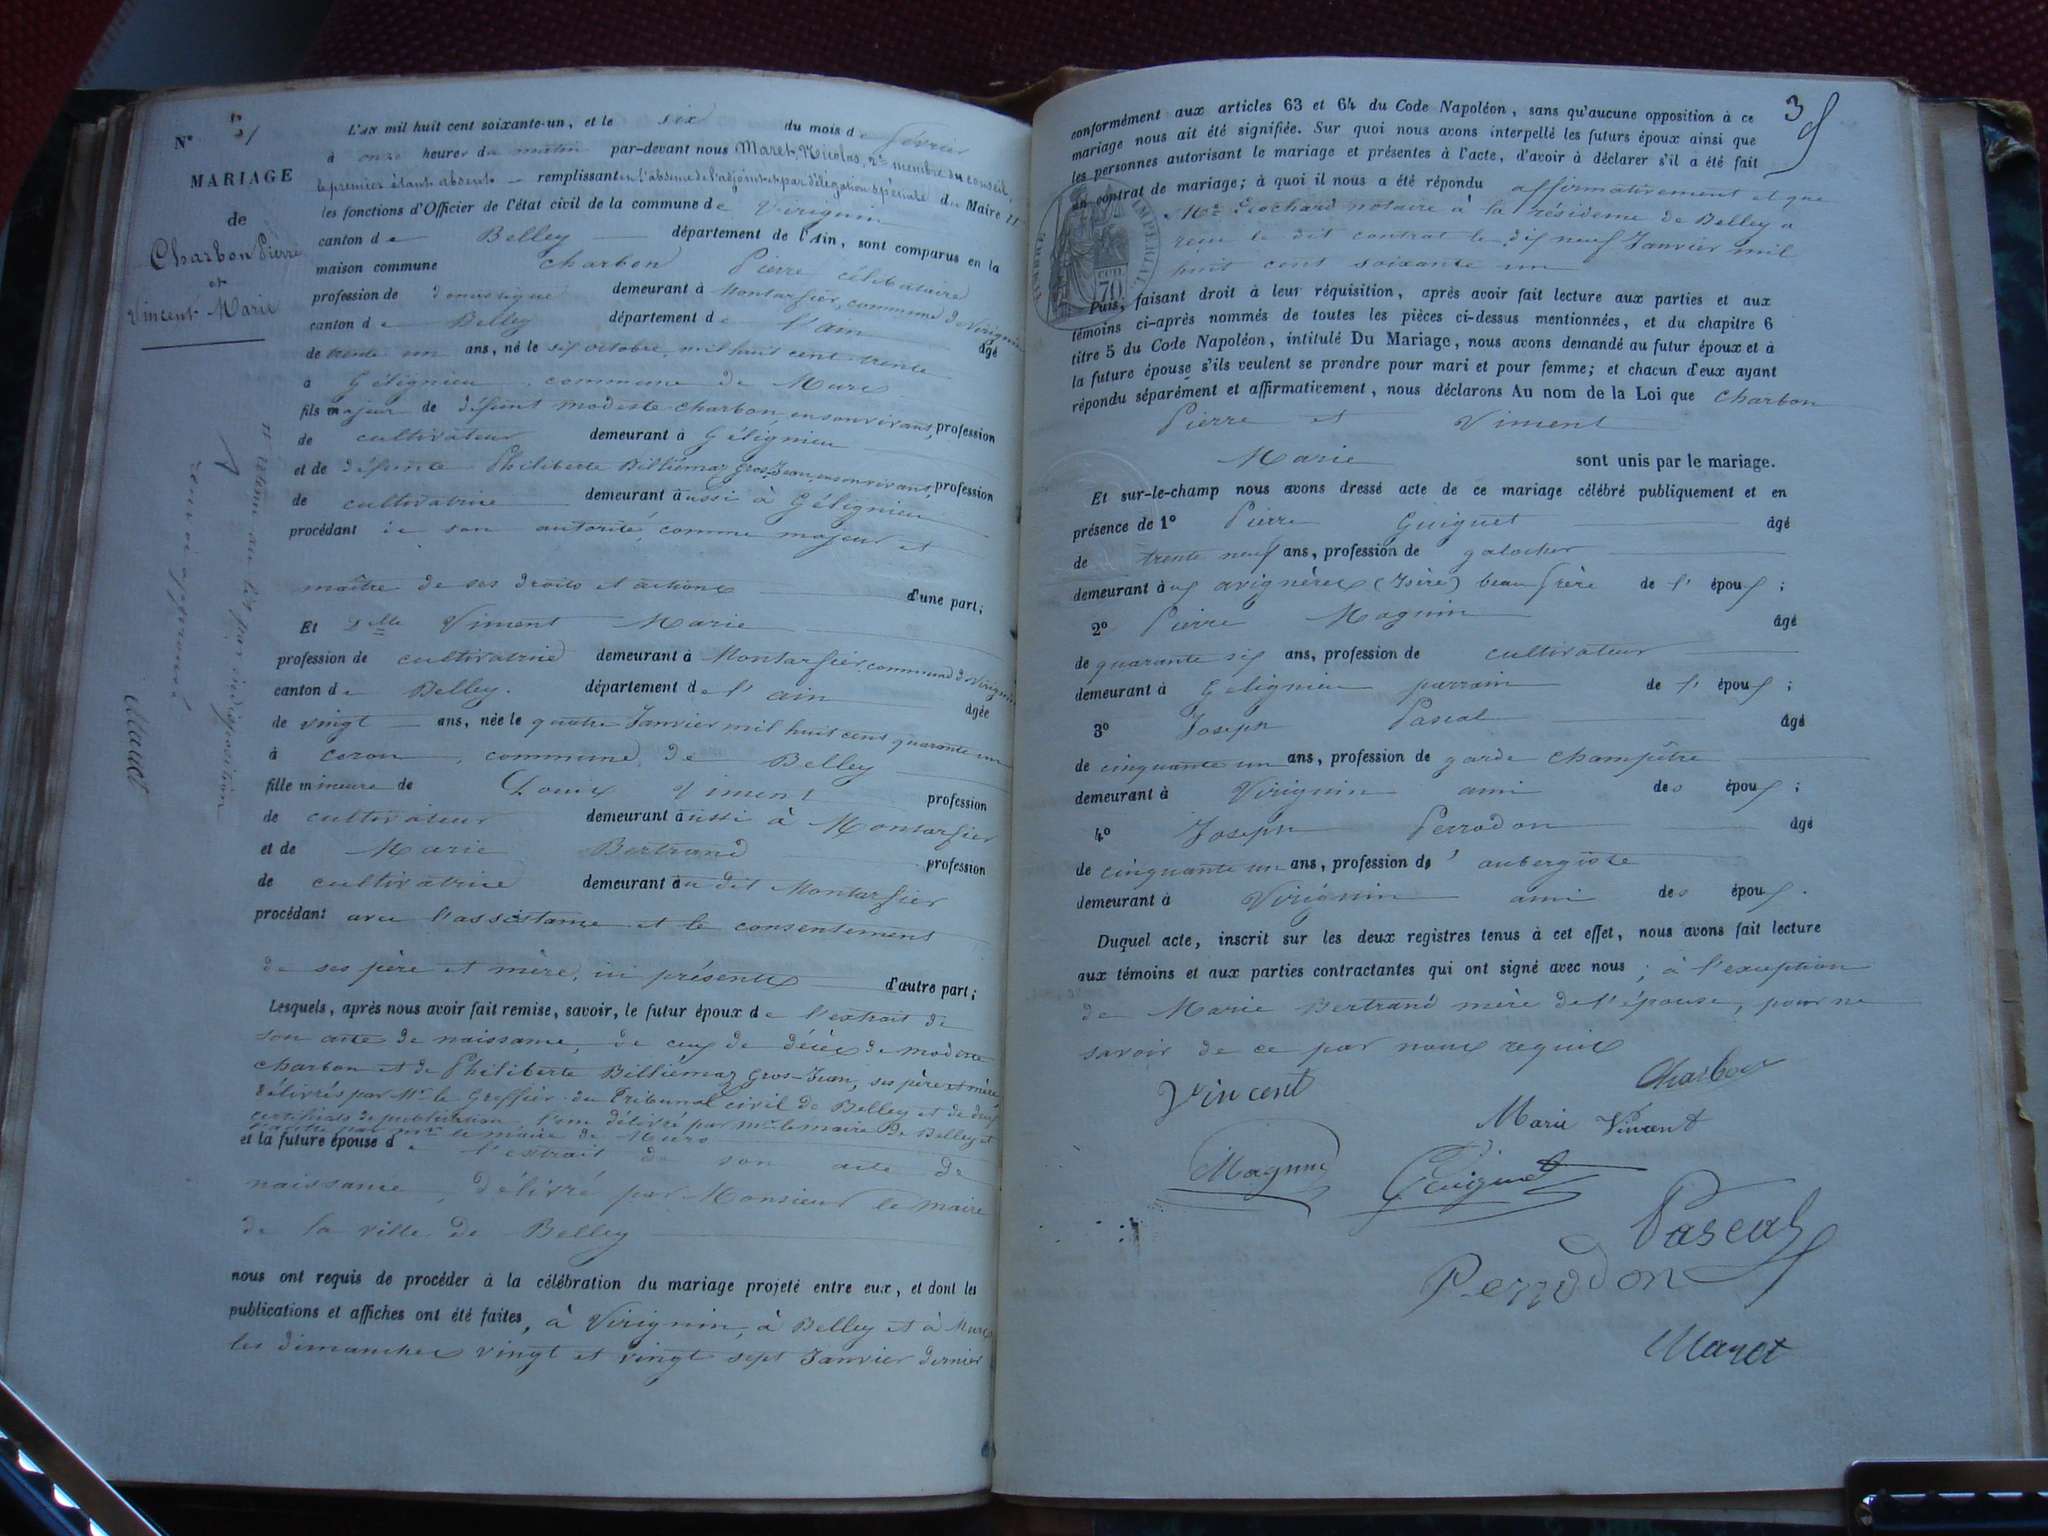 N° 3
MARIAGE
de
Charbon Pierre
et
Vincent Marie
L'AN mil huit cent soixante-un, et le six du mois de février
à onze heures du matin par-devant nous Maret, Nicolas, 2e membre du conseil,
le premier étant absent remplissant en l'absence de l'adjoint et par délégation spéciale du Maire
les fonctions d'Officier de l'état civil de la commune de Virignin
canton de Belley département de l'Ain, sont comparus en la
maison commune Charbon Pierre célibataire
profession de domestique demeurant à Montarfier, commune de Virignin
canton de Belley département de l'ain âgé
de trente un ans, né le six octobre mil huit cent trente
à Gélignieu commune de Murs
fils majeur de défunt modeste Charbon, en son vivant, profession
de cultivateur demeurant à Gélignieu
et de défunte Philiberte Billiémaz Gros-Jean, en son vivant, profession
de cultivatrice demeurant aussi à Gélignieu
procédant de son autorité, comme majeur et
maître de ses droits et actions d'une part;
Et Delle Vincent Marie
profession de cultivatrice demeurant à Montarfier commune de Virignin
canton de Belley. département de l'ain âgée
de vingt ans, née le quatre Janvier mil huit cent quarante un
à coron, commune de Belley
fille mineure de Louis Vincent profession
de cultivateur demeurant aussi à Montarfier
et de Marie Bertrand profession
de cultivatrice demeurant au dit Montarfier
procédant avec l'assistance et le consentement
de ses père et mère, ici présents d'autre part;
Lesquels, après nous avoir fait remise, savoir, le futur époux de l'extrait de
son acte de naissance, de ceux de décès de modeste
charbon et de Philiberte Billiémaz Gros-Jean, ses père et mère,
délivrés par Mr le Greffier du Tribunal civil de Belley et de deux
certificats de publication l'un délivré par Mr le maire de Belley et
l'autre par Mr le maire de Murs
et la future épouse de l'extrait de son acte de
naissance, délivré par Monsieur le maire
de la ville de Belley
nous ont requis de procéder à la célébration du mariage projeté entre eux, et dont les
publications et affiches ont été faites, à Virignin, à Belley et à Murs
les dimanches vingt et vingt sept Janvier dernier
11 retenu au lit par indisposition
renvoi approuvé
Maret
3
conformément aux articles 63 et 64 du Code Napoléon, sans qu'aucune opposition à ce
mariage nous ait été signifiée. Sur quoi nous avons interpellé les futurs époux ainsi que
les personnes autorisant le mariage et présentes à l'acte, d'avoir à déclarer s'il a été fait
un contrat de mariage; à quoi il nous a été répondu affirmativement et que
notaire à la résidence de Belley a
reçu le dit contrat le dix neuf Janvier mil
huit cent soixante un
TIMBRE IMPÉRIAL
70
Puis, faisant droit à leur réquisition, après avoir fait lecture aux parties et aux
témoins ci-après nommés de toutes les pièces ci-dessus mentionnées, et du chapitre 6
titre 5 du Code Napoléon, intitulé Du Mariage, nous avons demandé au futur époux et à
la future épouse s'ils veulent se prendre pour mari et pour femme; et chacun d'eux ayant
répondu séparément et affirmativement, nous déclarons Au nom de la Loi que Charbon
Pierre et Vincent
Marie sont unis par le mariage.
Et sur-le-champ nous avons dressé acte de ce mariage célébré publiquement et en
présence de 1° Pierre Guiguet âgé
de trente neuf ans, profession de galocher
demeurant aux avignères (Isère) beau frère de l' époux;
2° Pierre Magnin âgé
de quarante six ans, profession de cultivateur
demeurant à Gélignieu parrain de l' époux;
3° Joseph Pascal âgé
de cinquante un ans, profession de garde champêtre
demeurant à Virignin ami des époux;
4° Joseph Perrodon âgé
de cinquante un ans, profession d' aubergiste
demeurant à Virignin ami des époux.
Duquel acte, inscrit sur les deux registres tenus à cet effet, nous avons fait lecture
aux témoins et aux parties contractantes qui ont signé avec nous; à l'exception
de Marie Bertrand mère de l'épouse, pour ne
savoir de ce par nous requis
Vincent Charbon
Marie Vincent
Magnin Guiguet
Pascal
Perrodon
Maret